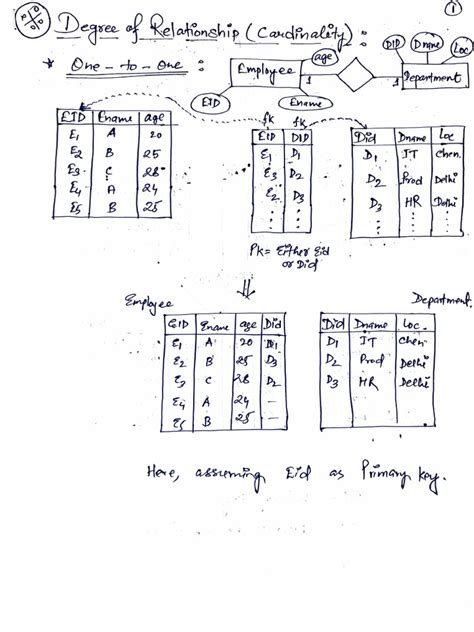 ①
Degree of Relationship (Cardinality) :
* One - to - One :
Employee
age
EID
Ename
1
1
Department
DID
Dname
Loc
EID Ename age
E1 A 20
E2 B 25
E3 C 28
E4 A 24
E5 B 25
fk fk
EID DID
E1 D1
E3 D2
E2 D3
Pk = Either Eid
or Did
Did Dname Loc
D1 IT Chen.
D2 Prod Delhi
D3 HR Delhi
⇓
Employee
EID Ename age Did
E1 A 20 D1
E2 B 25 D3
E3 C 28 D2
E4 A 24 —
E5 B 25 —
Department.
Did Dname Loc.
D1 IT Chen
D2 Prod Delhi
D3 HR Delhi
Here, assuming Eid as Primary key.